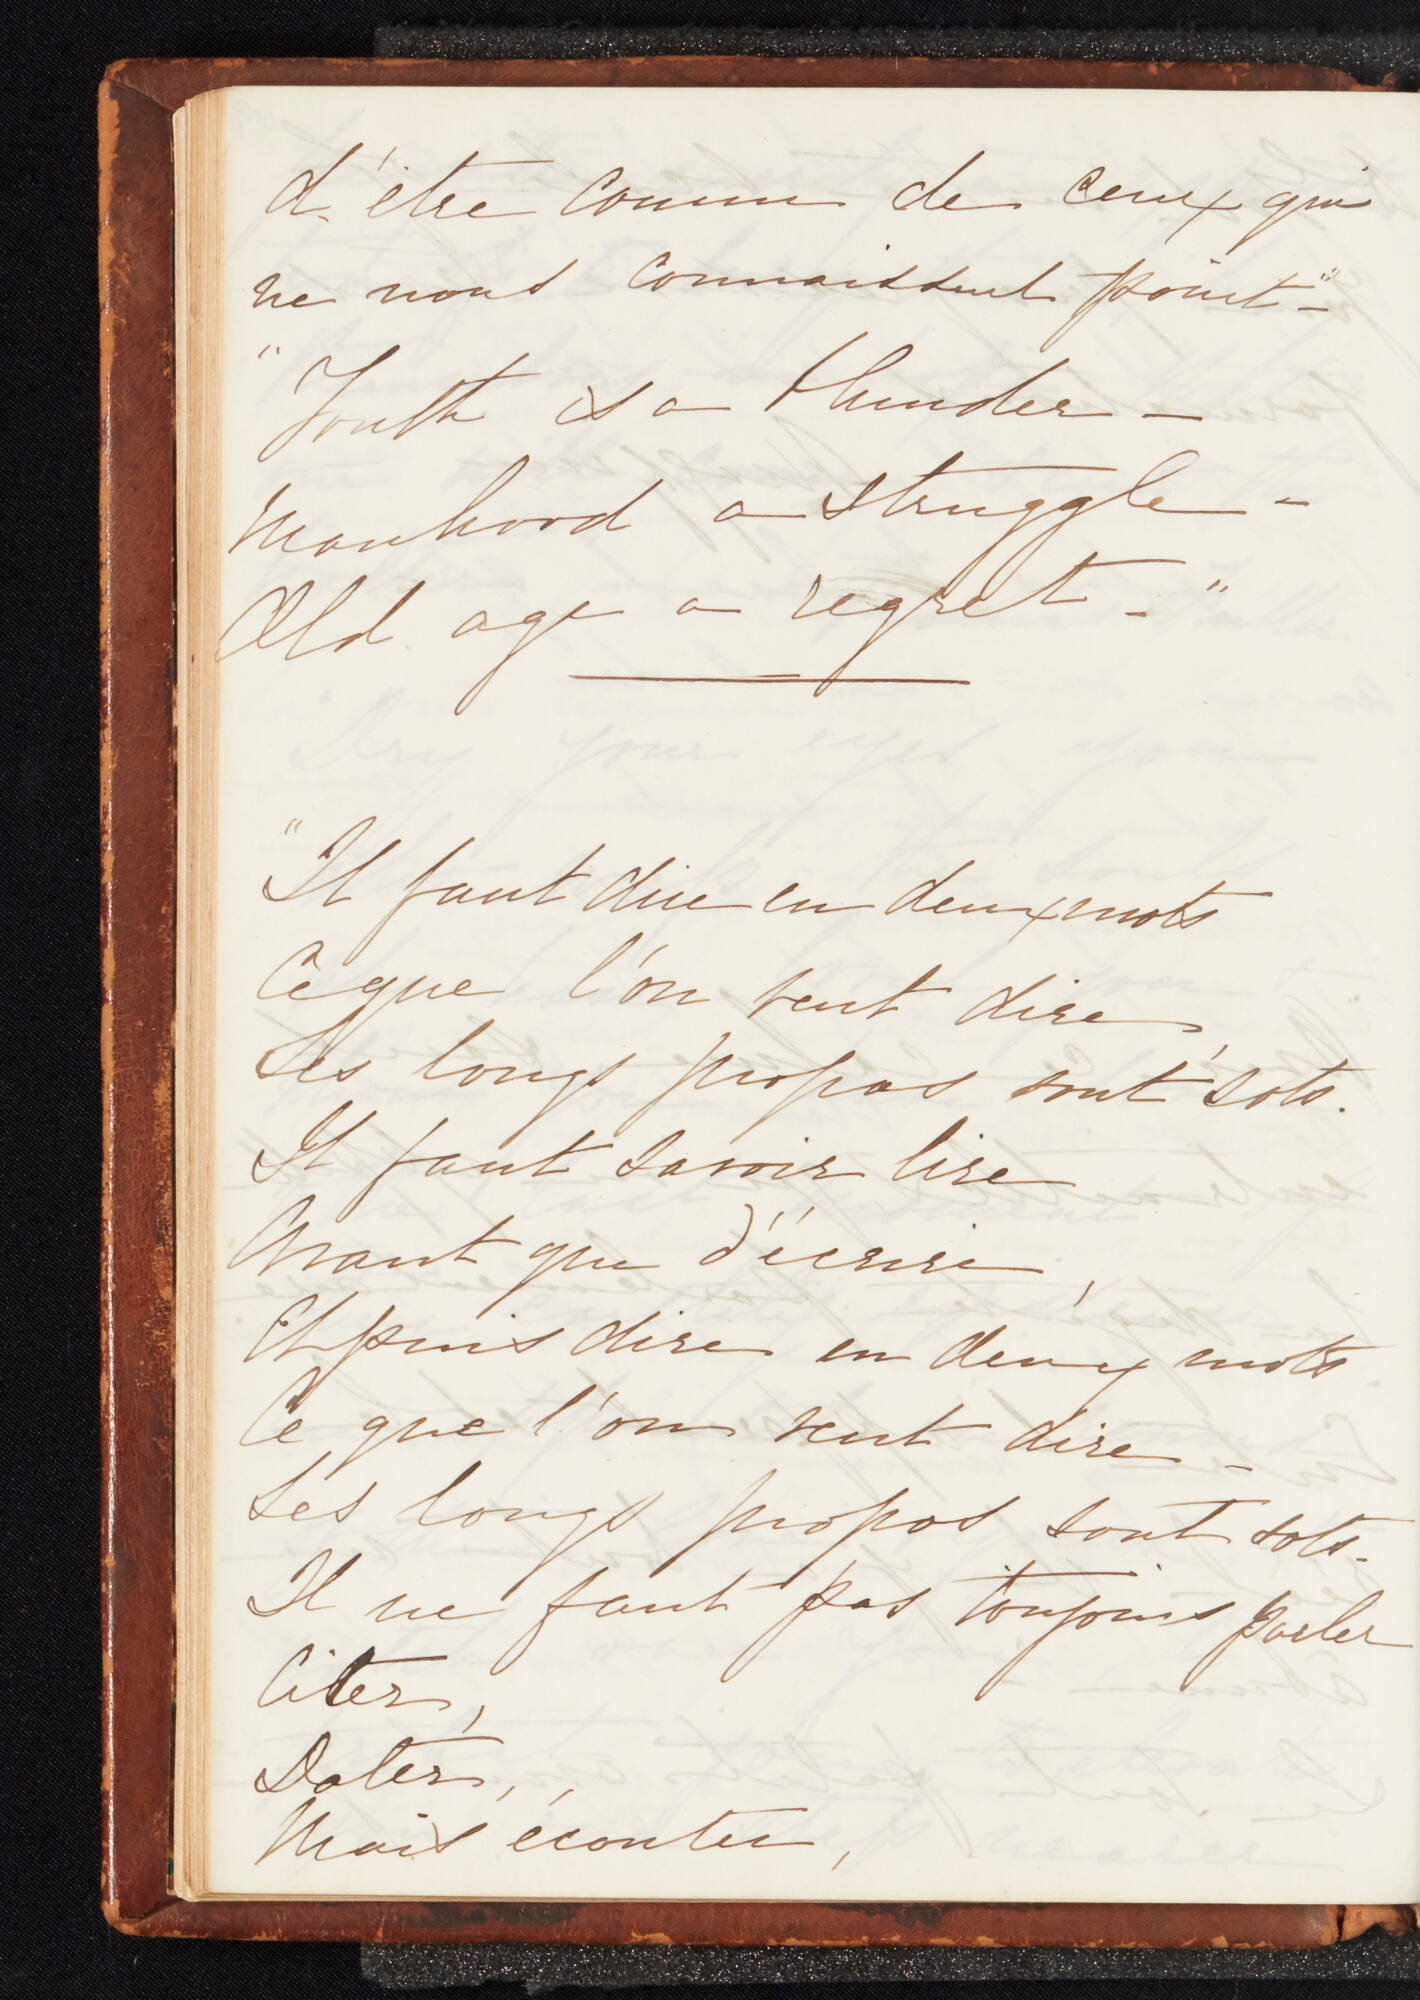 d'être connu de ceux qui
ne nous connaissent point"-
"Youth is a blunder -
Manhood a struggle -
Old age a regret - "
"Il faut dire en deux mots
Ce que l'on veut dire,
Les longs propos sont sots.
Il faut savoir lire
Avant que d'écrire,
Et puis dire en deux mots
Ce que l'on veut dire -
Les longs propos sont sots -
Il ne faut pas toujours parler
Citer,
Dater,
Mais écouter,